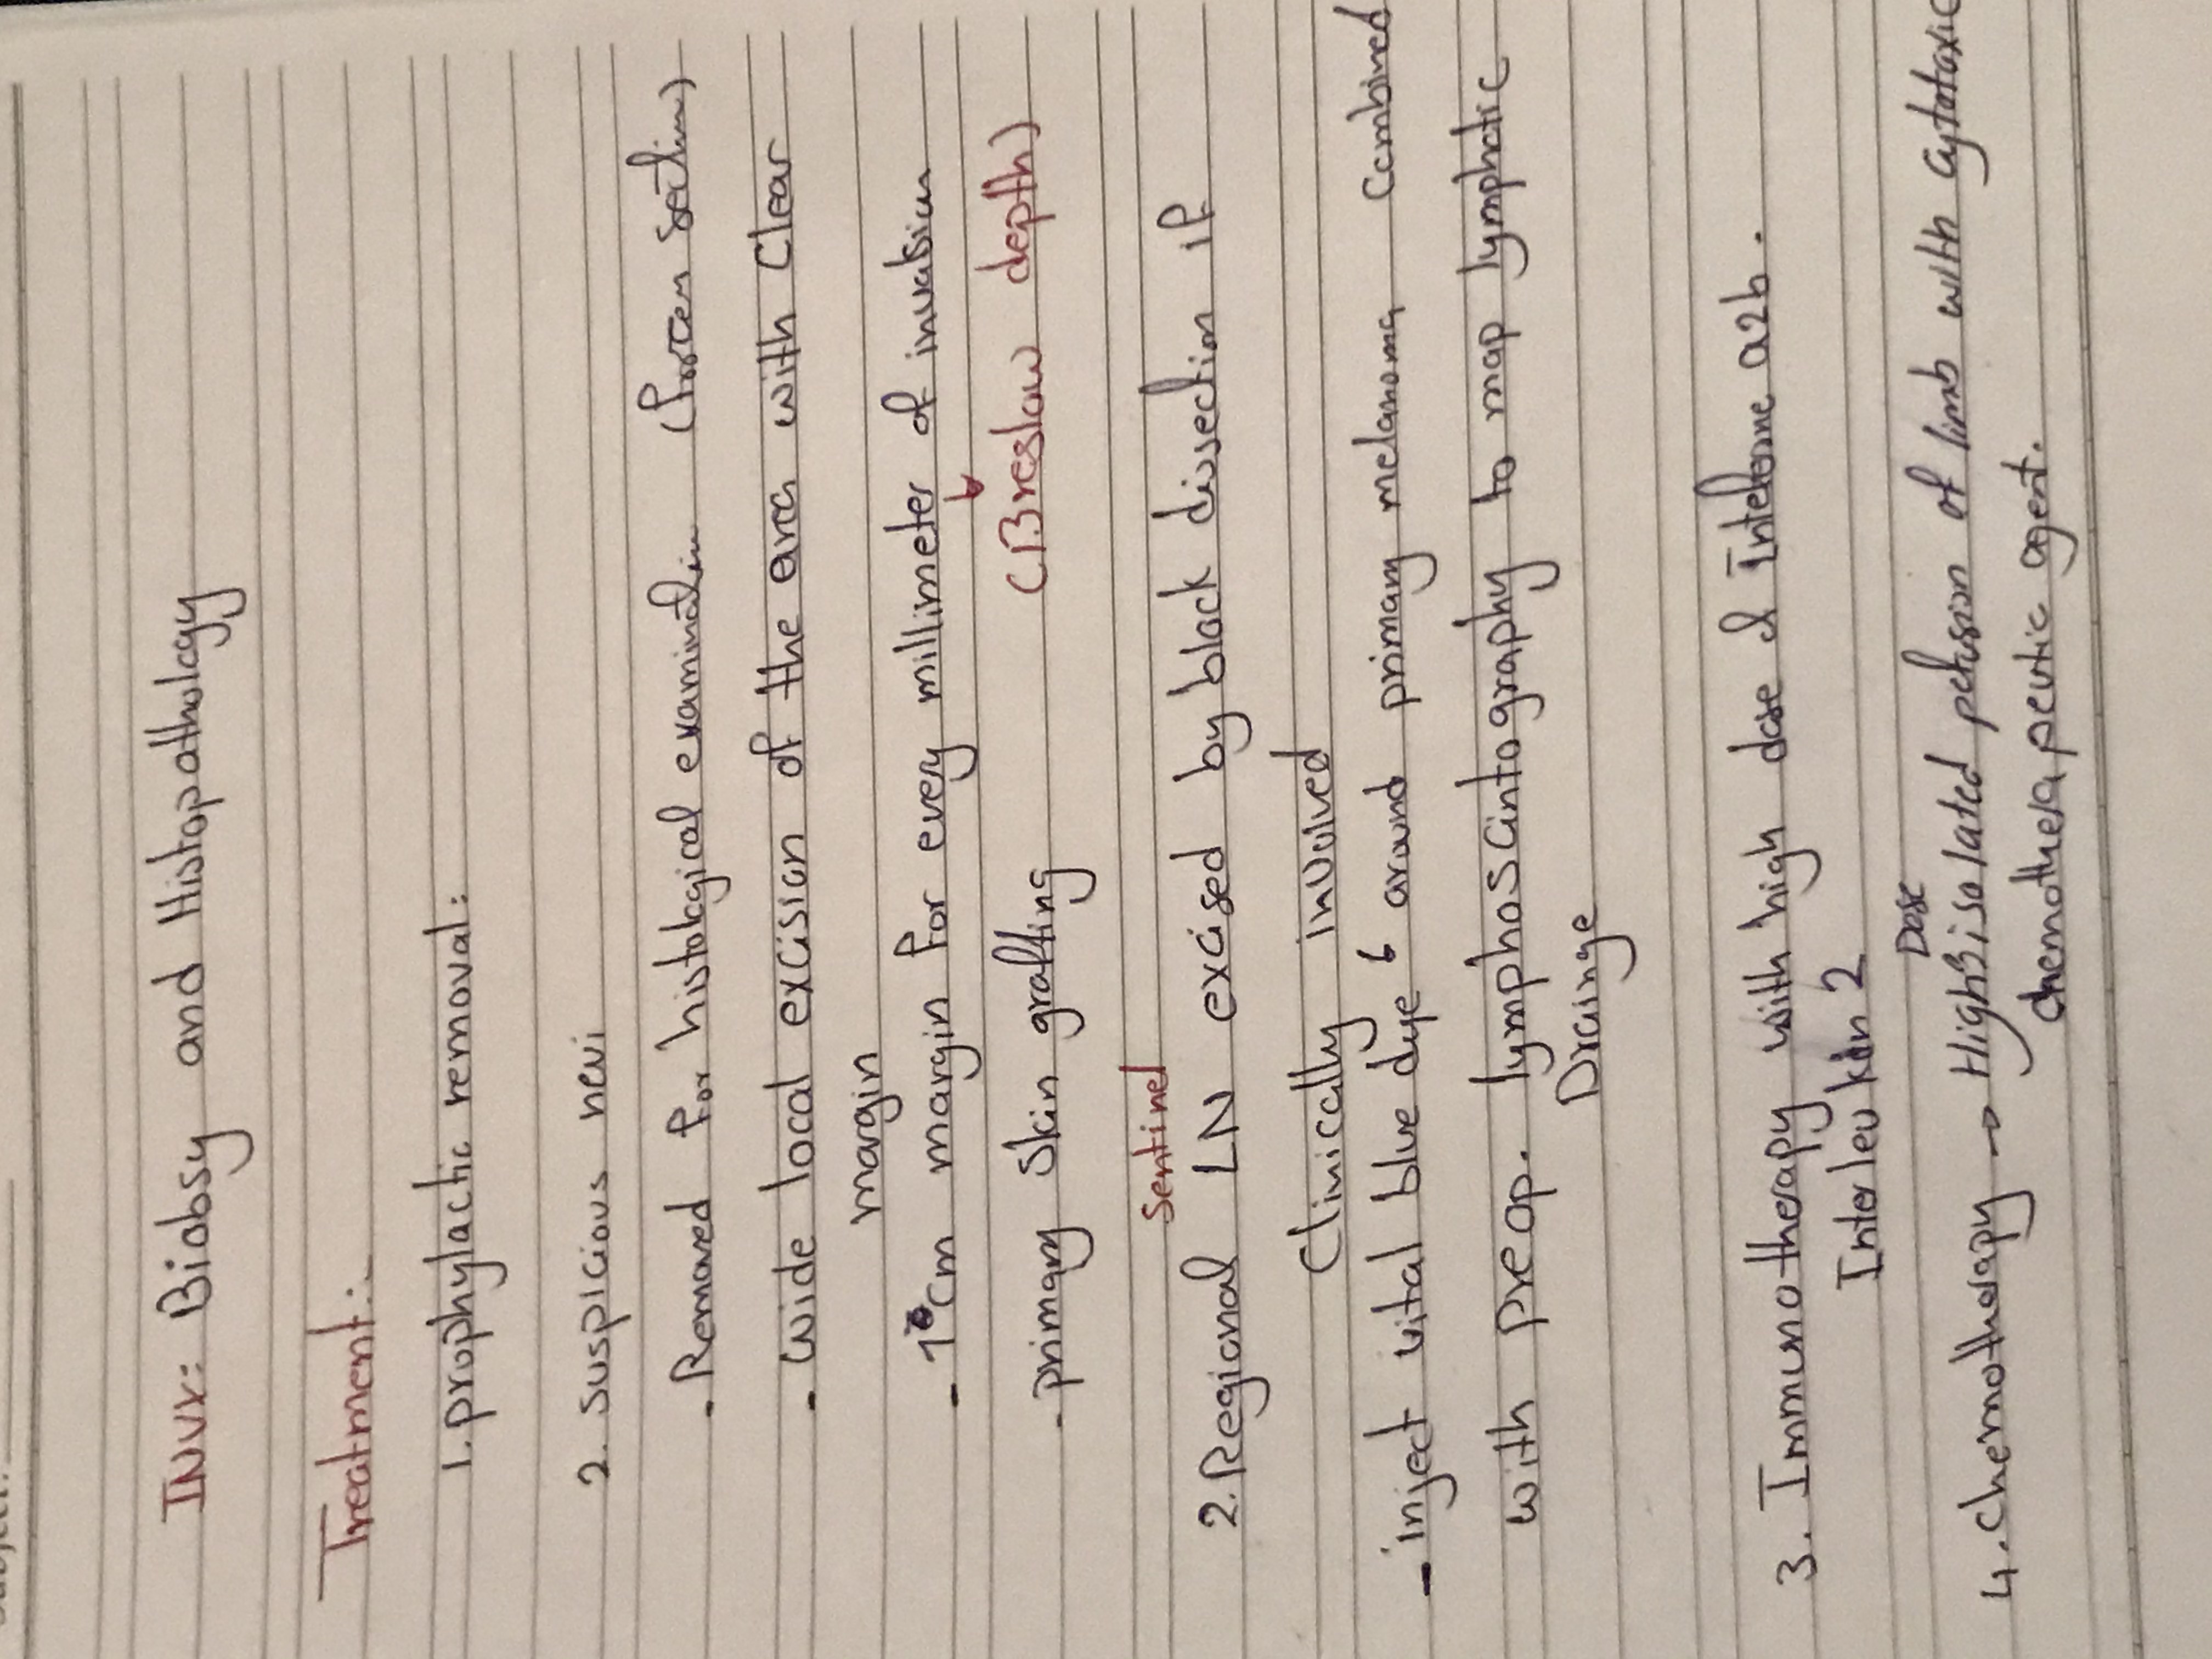 INVx: Biobsy and Histopathology
Treatment:
1. prophylactic removal:
2. Suspicious nevi
- Removed for histological examination (frozen section)
- wide local excision of the area with Clear
margin
- 1 cm margin for every millimeter of invasion
(Breslow depth)
- primary skin grafting
Sentinel
2. Regional LN excised by black dissection if
Clinically involved
- inject vital blue dye around primary melanoma combined
with preop. lymphoscintography to map lymphatic
Drainge
3. Immunotherapy with high dose of Inteferone a2b.
Interleukin 2
Dose
4. chemotherapy → High isolated pefusion of limb with cytotoxic
chemotherapeutic agent.